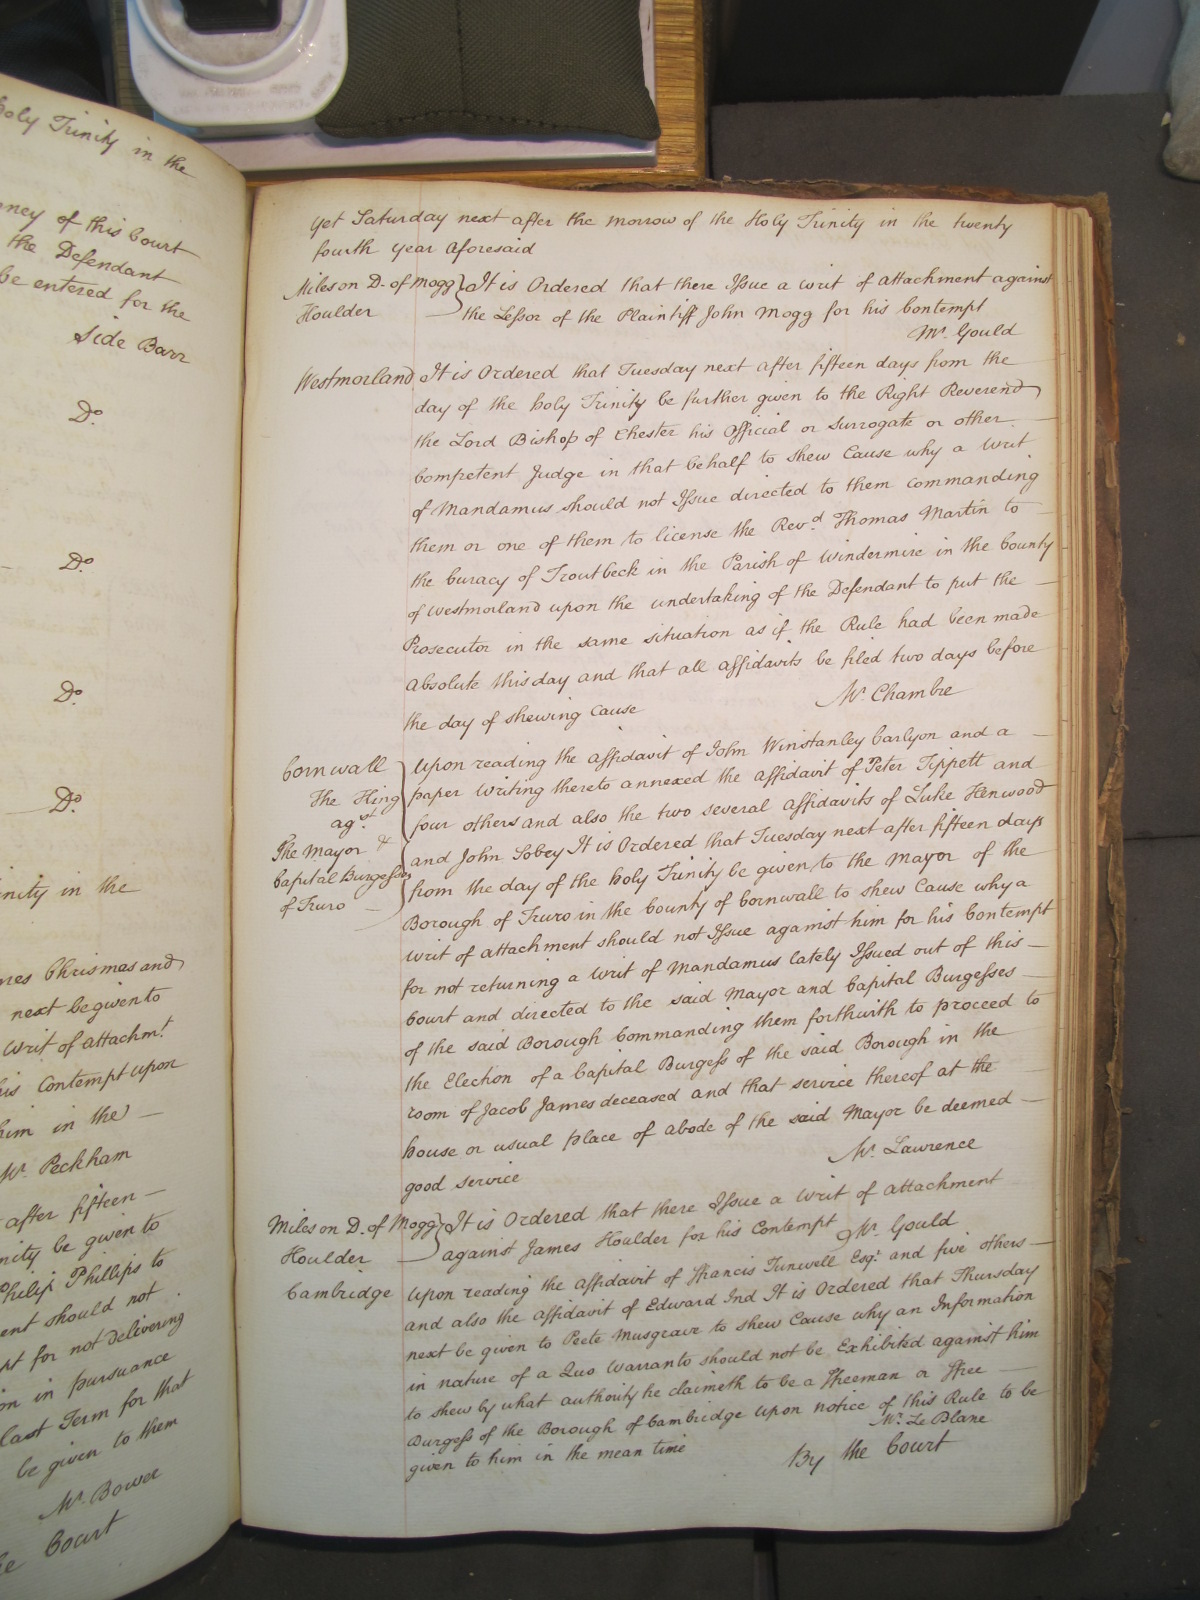 holy Trinity in the
of this Court
the Defendant
be entered for the
Side Barr
Do.
Do.
Do.
Do.
in the
Chrismas and
next be given to
writ of attachmt.
his Contempt upon
him in the —
Mr. Peckham
after fifteen —
be given to
Philip Phillips to
should not
for not delivering
in pursuance
last Term for that
be given to them
Mr. Bower
Court
Yet Saturday next after the morrow of the Holy Trinity in the twenty
fourth year aforesaid
Miles on D. of Mogg } It is Ordered that there Issue a writ of attachment against
Houlder the Lessor of the Plaintiff John Mogg for his Contempt
Mr. Gould
Westmorland It is Ordered that Tuesday next after fifteen days from the
day of the holy Trinity be further given to the Right Reverend
the Lord Bishop of Chester his Official or Surrogate or other
Competent Judge in that behalf to shew Cause why a Writ
of Mandamus should not Issue directed to them commanding
them or one of them to license the Revd. Thomas Martin to —
the Curacy of Troutbeck in the Parish of Windermire in the County
of Westmorland upon the undertaking of the Defendant to put the —
Prosecutor in the same situation as if the Rule had been made
absolute this day and that all affidavits be filed two days before
the day of shewing Cause Mr. Chambre
Cornwall Upon reading the affidavit of John Winstanley Carlyon and a —
The King paper writing thereto annexed the affidavit of Peter Tippett and
agst. four others and also the two several affidavits of Luke Henwood
The Mayor & and John Sobey It is Ordered that Tuesday next after fifteen days
Capital Burgesses from the day of the holy Trinity be given to the Mayor of the
of Truro — Borough of Truro in the County of Cornwall to shew Cause why a
writ of attachment should not Issue against him for his Contempt
for not returning a writ of Mandamus lately Issued out of this —
Court and directed to the said Mayor and Capital Burgesses —
of the said Borough Commanding them forthwith to proceed to
the Election of a Capital Burgess of the said Borough in the
room of Jacob James deceased and that service thereof at the —
house or usual place of abode of the said Mayor be deemed —
good service Mr. Lawrence
Miles on D. of Mogg } It is Ordered that there Issue a Writ of attachment
Houlder — against James Houlder for his Contempt Mr. Gould
Cambridge Upon reading the affidavit of Francis Tunwell Esqr. and five others —
and also the affidavit of Edward Ind It is Ordered that Thursday
next be given to Peete Musgrave to shew Cause why an Information
in nature of a Quo Warranto should not be Exhibited against him
to shew by what authority he claimeth to be a Freeman or Free —
Burgess of the Borough of Cambridge upon notice of this Rule to be
given to him in the mean time Mr. Le Blanc
By the Court